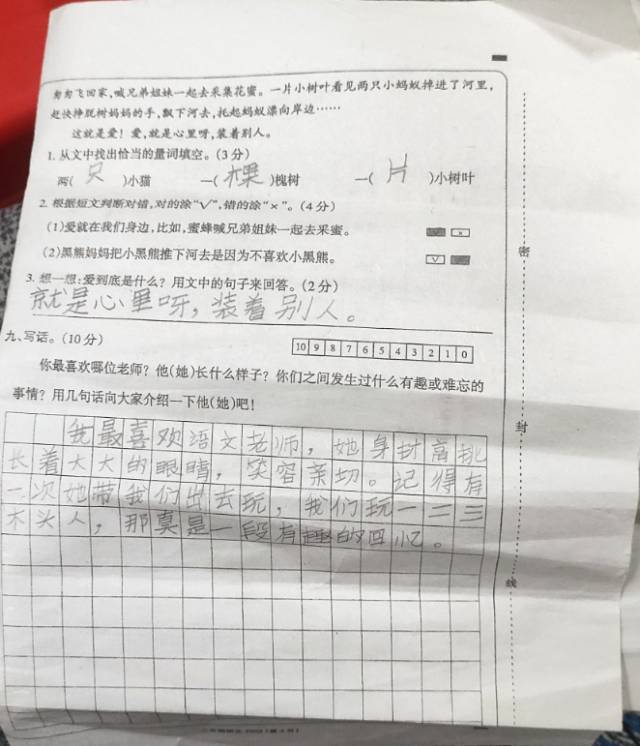 匆匆飞回家,喊兄弟姐妹一起去采集花蜜。一片小树叶看见两只小蚂蚁掉进了河里,
赶快挣脱树妈妈的手,飘下河去,托起蚂蚁漂向岸边……
这就是爱!爱,就是心里呀,装着别人。
1. 从文中找出恰当的量词填空。(3分)
两(只)小猫 一(棵)槐树 一(片)小树叶
2. 根据短文判断对错,对的涂“√”,错的涂“×”。(4分)
(1)爱就在我们身边,比如,蜜蜂喊兄弟姐妹一起去采蜜。 √ ×
(2)黑熊妈妈把小黑熊推下河去是因为不喜欢小黑熊。 √
3. 想一想:爱到底是什么?用文中的句子来回答。(2分)
就是心里呀,装着别人。
九、写话。(10分) 10 9 8 7 6 5 4 3 2 1 0
你最喜欢哪位老师?他(她)长什么样子?你们之间发生过什么有趣或难忘的
事情?用几句话向大家介绍一下他(她)吧!
我最喜欢语文老师,她身材高挑
长着大大的眼睛,笑容亲切。记得有
一次她带我们出去玩,我们玩一二三
木头人,那真是一段有趣的回忆。
密
封
线